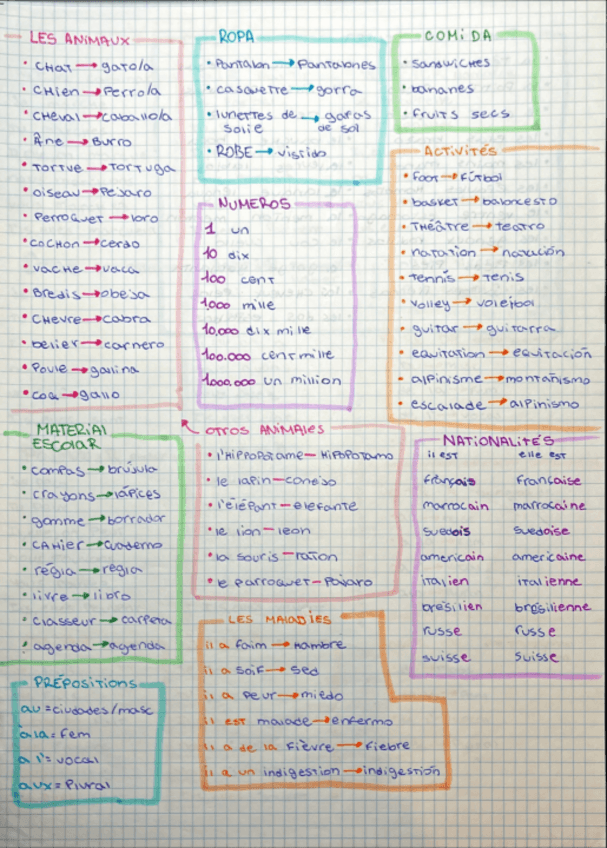 LES ANIMAUX
• CHAT → gato/a
• CHien → Perro/a
• CHeval → caballo/a
• Âne → Burro
• Tortue → Tortuga
• oiseau → Pejaro
• Perroquet → loro
• cocHon → cerdo
• vacHe → vaca
• Bredis → obeja
• CHevre → cabra
• belier → carnero
• Poule → gallina
• coq → gallo
ROPA
• Pantalon → Pantalones
• casquette → gorra
• lunettes de → gafas
solie de sol
• ROBE → vistido
COMIDA
• sandwicHes
• bananes
• fruits secs
NUMEROS
1 un
10 dix
100 cent
1.000 mille
10.000 dix mille
100.000 centmille
1.000.000 un million
ACTIVITÉS
• foot → fútbol
• basket → baloncesto
• THéâtre → teatro
• natation → natación
• tennis → tenis
• volley → voleibol
• guitar → guitarra
• equitation → equitación
• alpinisme → montañismo
• escalade → alpinismo
MATERIAL
ESCOLAR
• compas → brújula
• crayons → lápices
• gomme → borrador
• caHier → cuaderno
• régla → regla
• livre → libro
• classeur → carpeta
• agenda → agenda
OTROS ANIMALES
• l'HiPPoPotame – HiPoPotamo
• le lapin – conejo
• l'éléPant – elefante
• le lion – leon
• la souris – raton
• le parroquet – Pajaro
NATIONALITÉS
il est elle est
français francaise
marrocain marrocaine
suedois suedoise
americain americaine
italien italienne
bresilien bresilienne
russe russe
suisse suisse
LES MALADIES
il a faim → Hambre
il a soif → sed
il a Peur → miedo
il est malade → enfermo
il a de la fièvre → fiebre
il a un indigestion → indigestión
PRÉPOSITIONS
au = ciudades/masc
à la = fem
a l' = vocal
aux = Plural